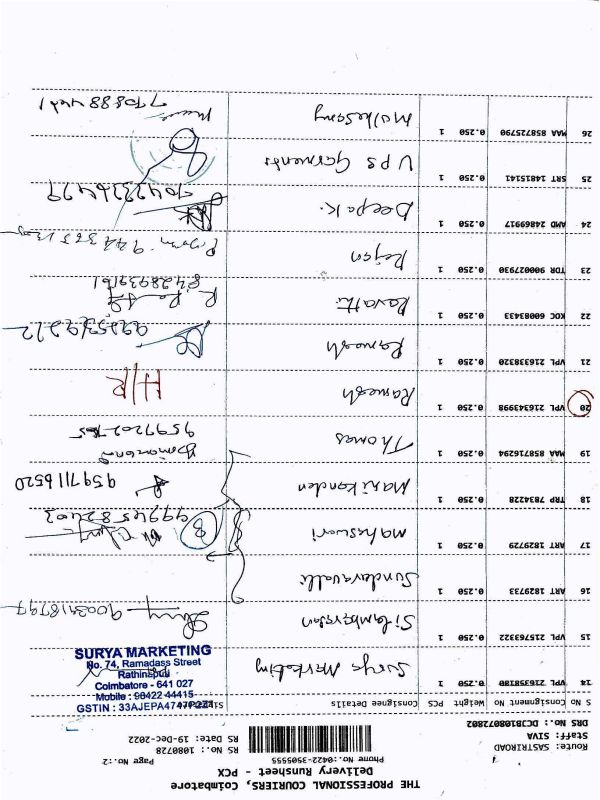 THE PROFESSIONAL COURIERS, Coimbatore
Delivery Runsheet - PCX
Phone No.:0422-3505555
Page No.:2
Route: SASTRIROAD
Staff: SIVA
DRS No.: DCJB108072802
RS No.: 1080728
RS Date: 19-Dec-2022
S No Consignment No Weight PCS Consignee Details
14 VPL 216358180 0.250 1 Surya Marketing
SURYA MARKETING
No. 74, Ramadass Street
Rathinapuri
Coimbatore - 641 027
Mobile : 98422 44415
15 VPL 215763322 0.250 1
16 ART 1829733 0.250 1 Sundaravalli
17 ART 1829729 0.250 1 Mahaswari
9994582403
18 TRP 7834228 0.250 1 Manikanden
9597116520
19 MAA 858716294 0.250 1 Thomas
20 VPL 216343998 0.250 1 Ramesh
H/R
21 VPL 216338320 0.250 1 Ramesh
22 KOC 60083433 0.250 1 Revathi
8428939161
23 TDR 900027930 0.250 1
24 AMD 24869917 0.250 1 Deepak.
25 SRT 14815141 0.250 1 UPS Garments
26 MAA 858725790 0.250 1